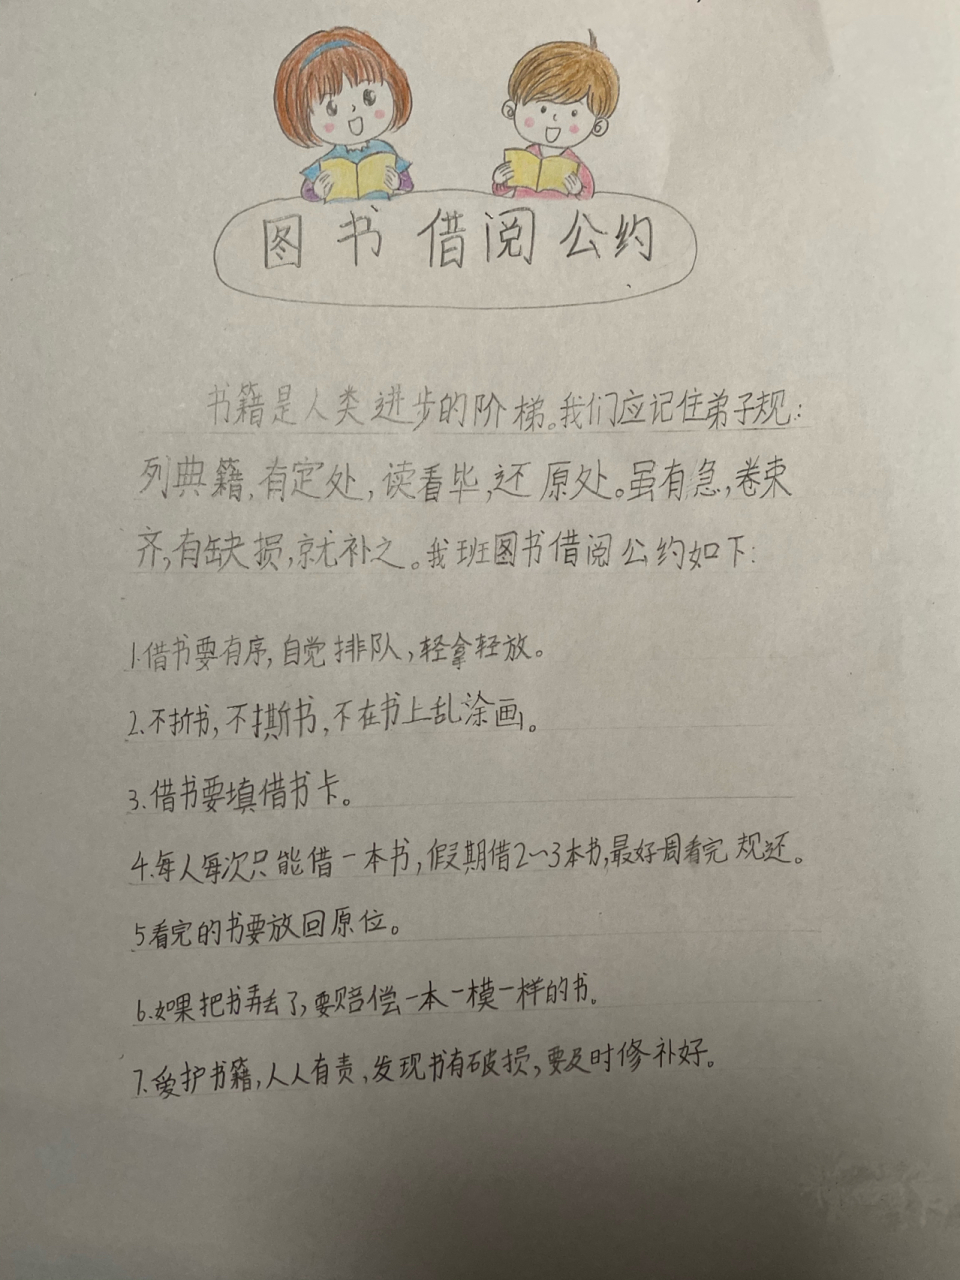 图书借阅公约
书籍是人类进步的阶梯。我们应记住弟子规:
列典籍,有定处,读看毕,还原处。虽有急,卷束
齐,有缺损,就补之。我班图书借阅公约如下:
1.借书要有序,自觉排队,轻拿轻放。
2.不折书,不撕书,不在书上乱涂画。
3.借书要填借书卡。
4.每人每次只能借一本书,假期借2~3本书,最好一周看完 规还。
5看完的书要放回原位。
6.如果把书弄丢了,要赔偿一本一模一样的书。
7.爱护书籍,人人有责,发现书有破损,要及时修补好。